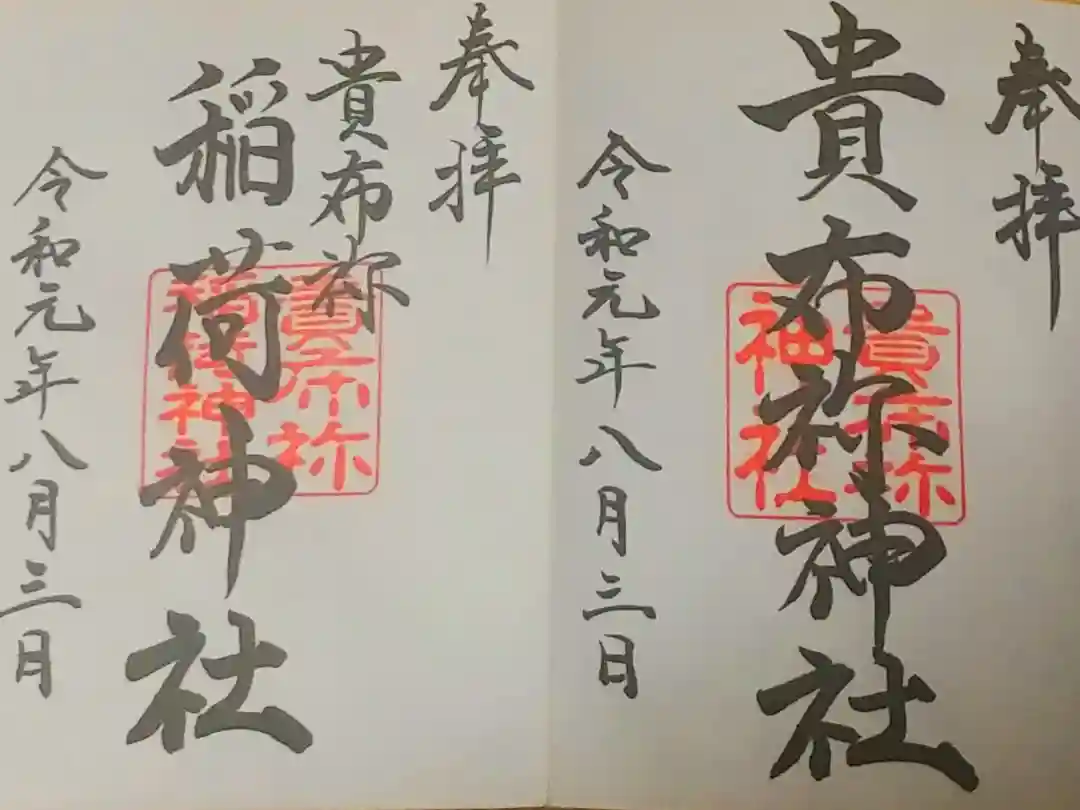 奉拝
貴布祢神社
貴布祢
神社
令和元年八月三日
奉拝
貴布祢
稲荷神社
貴布祢
稲荷神社
令和元年八月三日